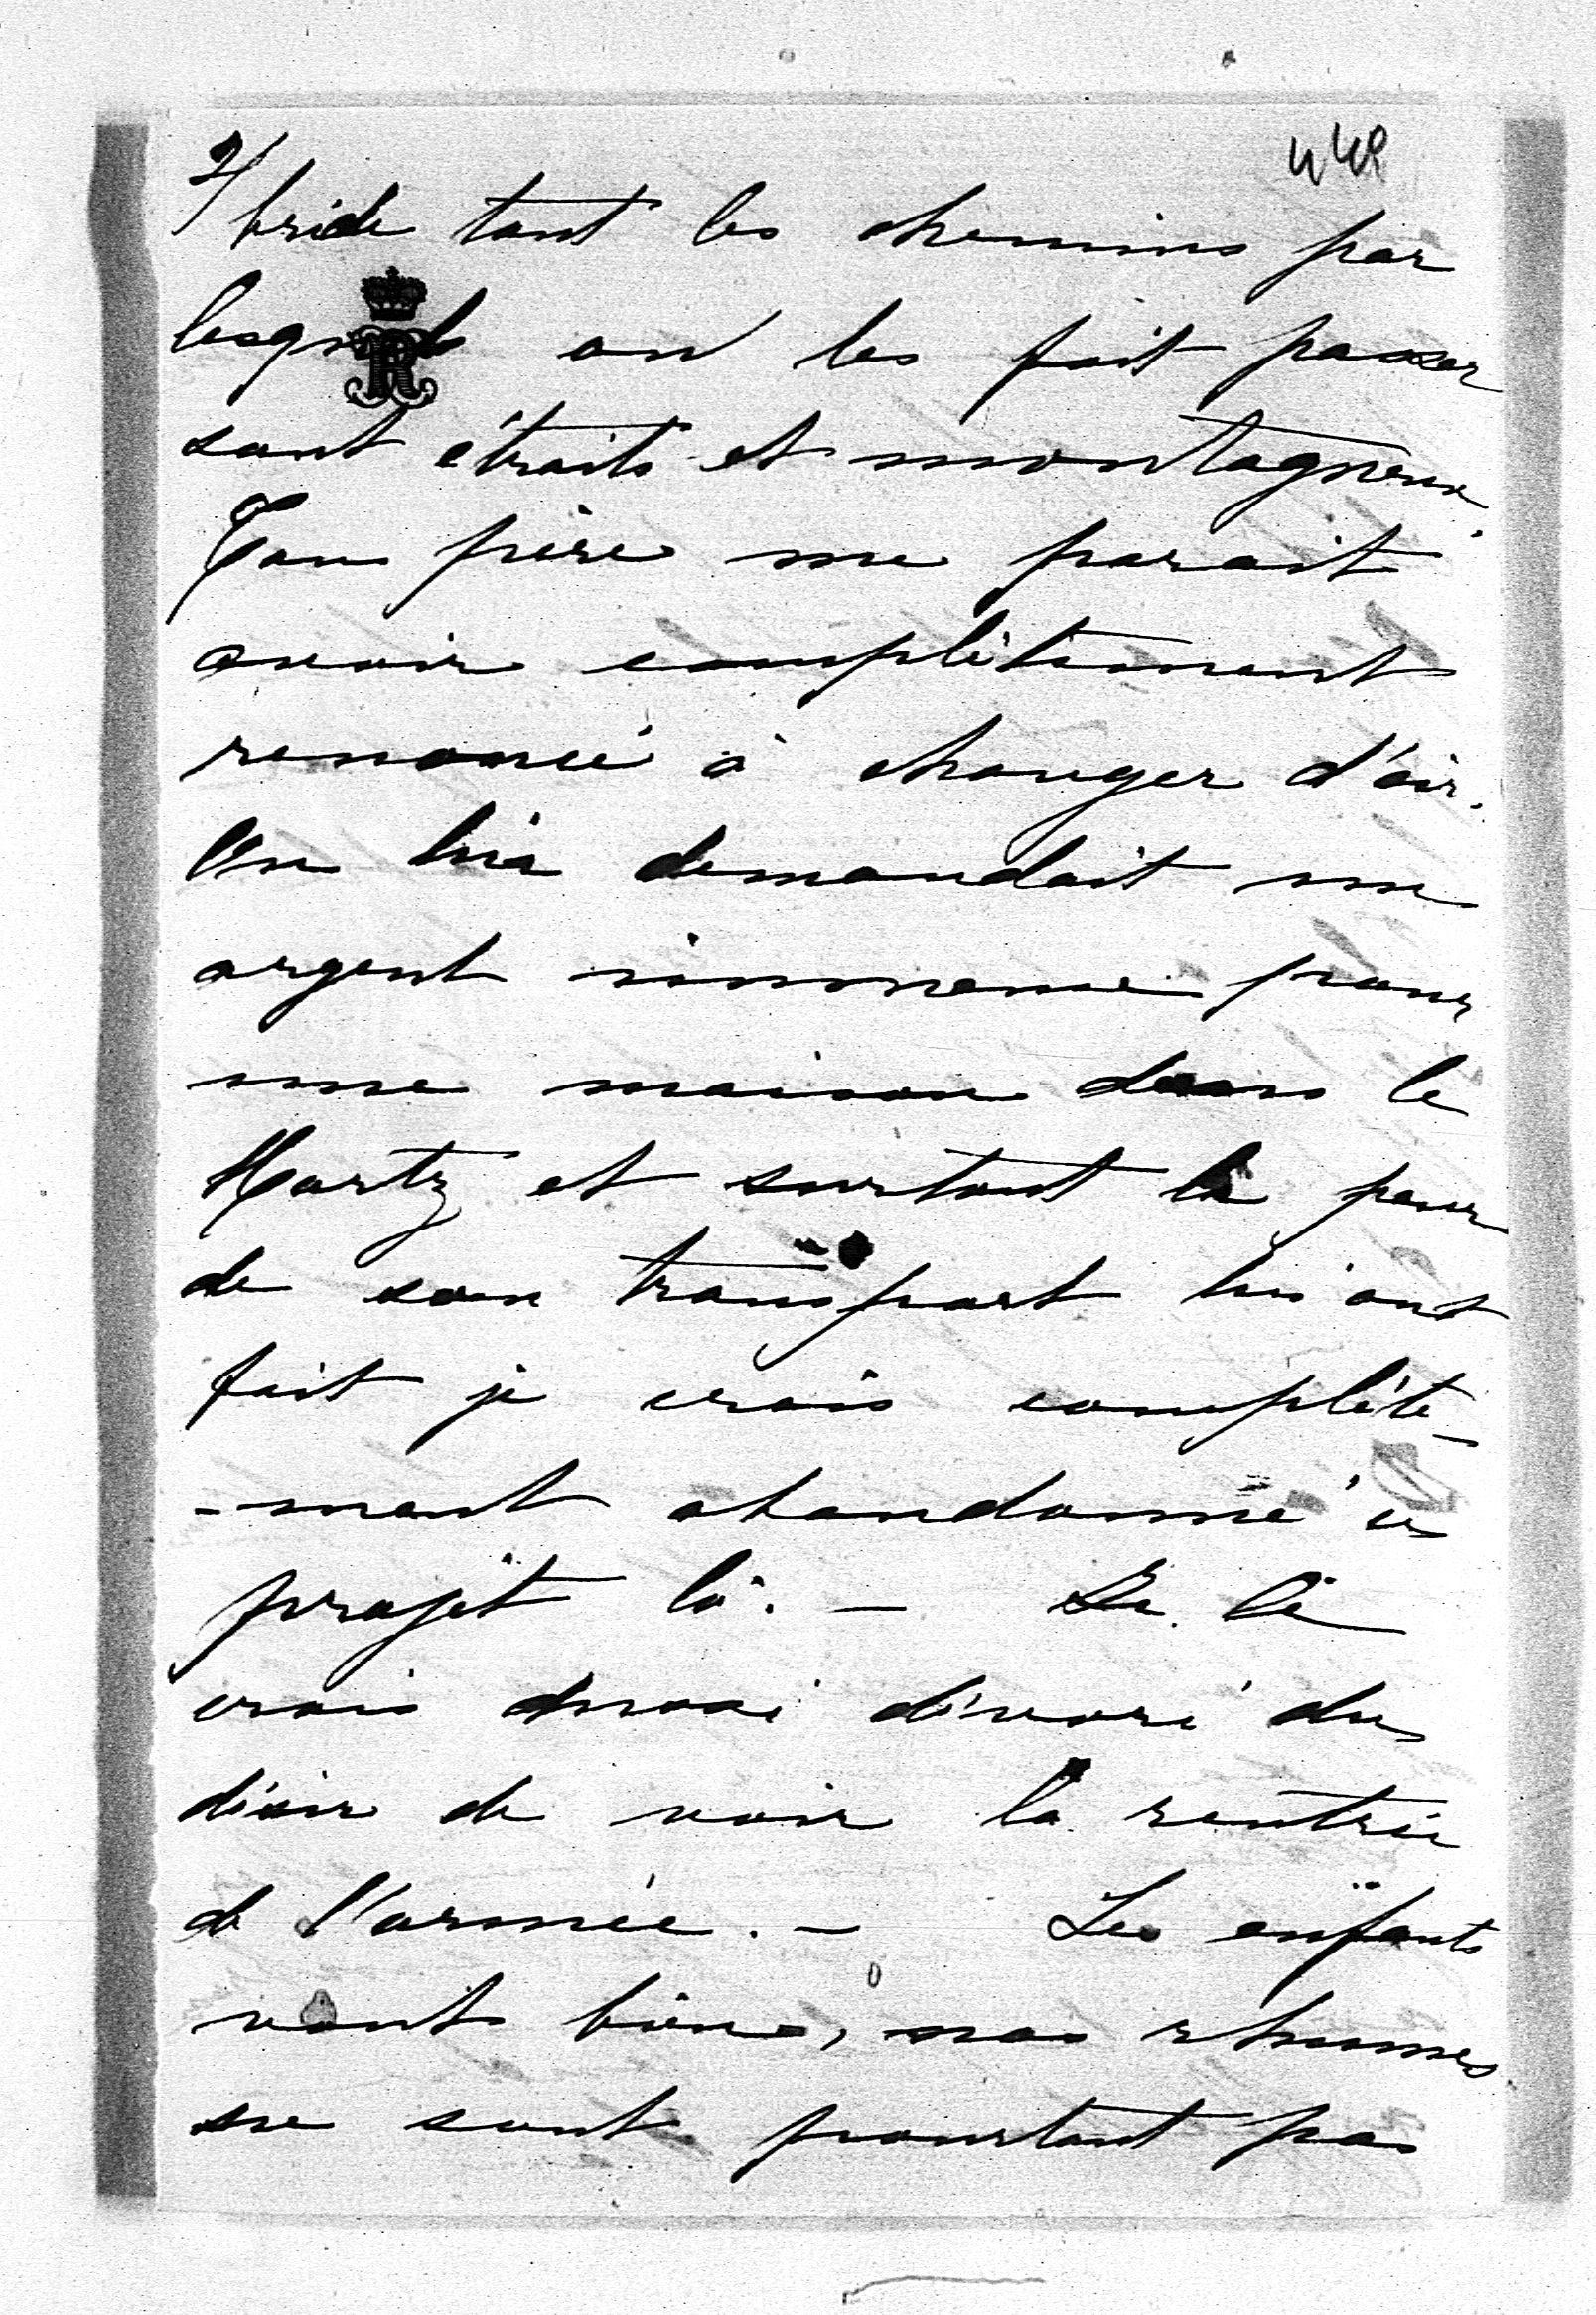 2/
448
bride tant les chemins par
lesquels on les fait passer
sont étroits et montagneux.
Ton père me parait
avoir complètement
renoncé à changer d'air.
On lui demandait un
argent immense pour
une maison dans le
Hartz et surtout la peur
de son transport lui ont
fait je crois complète-
-ment abandonné ce
projet là. — Je le
crois moi dévoré du
désir de voir la rentrée
de l'armée. — Les enfants
vont bien, nos rhumes
ne sont pourtant pas